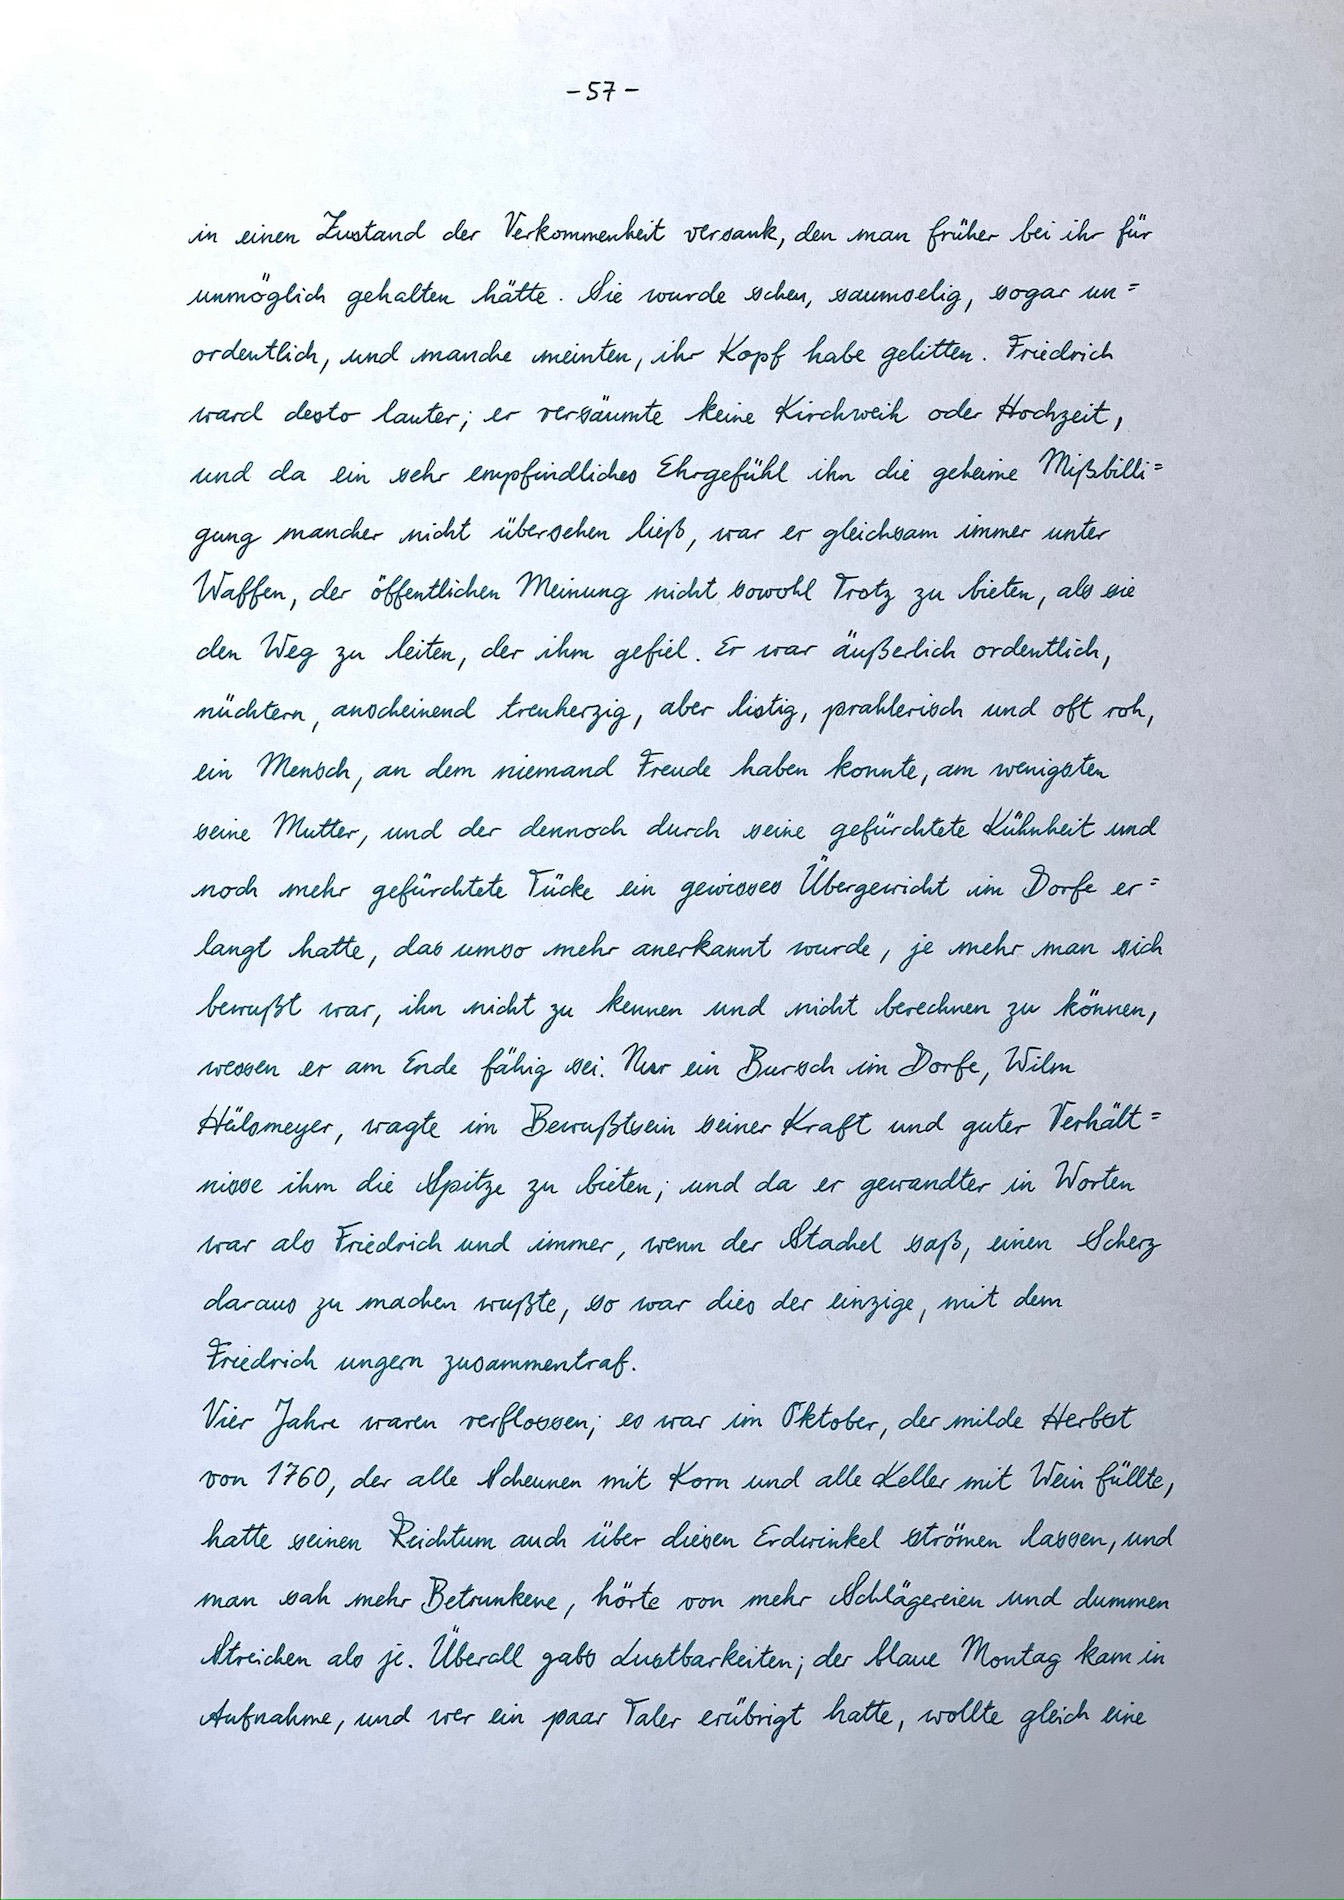 -57-
in einen Zustand der Verkommenheit versank, den man früher bei ihr für
unmöglich gehalten hätte. Sie wurde scheu, saumselig, sogar un=
ordentlich, und manche meinten, ihr Kopf habe gelitten. Friedrich
ward desto lauter; er versäumte keine Kirchweih oder Hochzeit,
und da ein sehr empfindliches Ehrgefühl ihn die geheime Mißbilli=
gung mancher nicht übersehen ließ, war er gleichsam immer unter
Waffen, der öffentlichen Meinung nicht sowohl Trotz zu bieten, als sie
den Weg zu leiten, der ihm gefiel. Er war äußerlich ordentlich,
nüchtern, anscheinend treuherzig, aber listig, prahlerisch und oft roh,
ein Mensch, an dem niemand Freude haben konnte, am wenigsten
seine Mutter, und der dennoch durch seine gefürchtete Kühnheit und
noch mehr gefürchtete Tücke ein gewisses Übergewicht im Dorfe er=
langt hatte, das umso mehr anerkannt wurde, je mehr man sich
bewußt war, ihn nicht zu kennen und nicht berechnen zu können,
wessen er am Ende fähig sei. Nur ein Bursch im Dorfe, Wilm
Hülsmeyer, wagte im Bewußtsein seiner Kraft und guter Verhält=
nisse ihm die Spitze zu bieten; und da er gewandter in Worten
war als Friedrich und immer, wenn der Stachel saß, einen Scherz
daraus zu machen wußte, so war dies der einzige, mit dem
Friedrich ungern zusammentraf.
Vier Jahre waren verflossen; es war im Oktober, der milde Herbst
von 1760, der alle Scheunen mit Korn und alle Keller mit Wein füllte,
hatte seinen Reichtum auch über diesen Erdwinkel strömen lassen, und
man sah mehr Betrunkene, hörte von mehr Schlägereien und dummen
Streichen als je. Überall gabs Lustbarkeiten; der blaue Montag kam in
Aufnahme, und wer ein paar Taler erübrigt hatte, wollte gleich eine